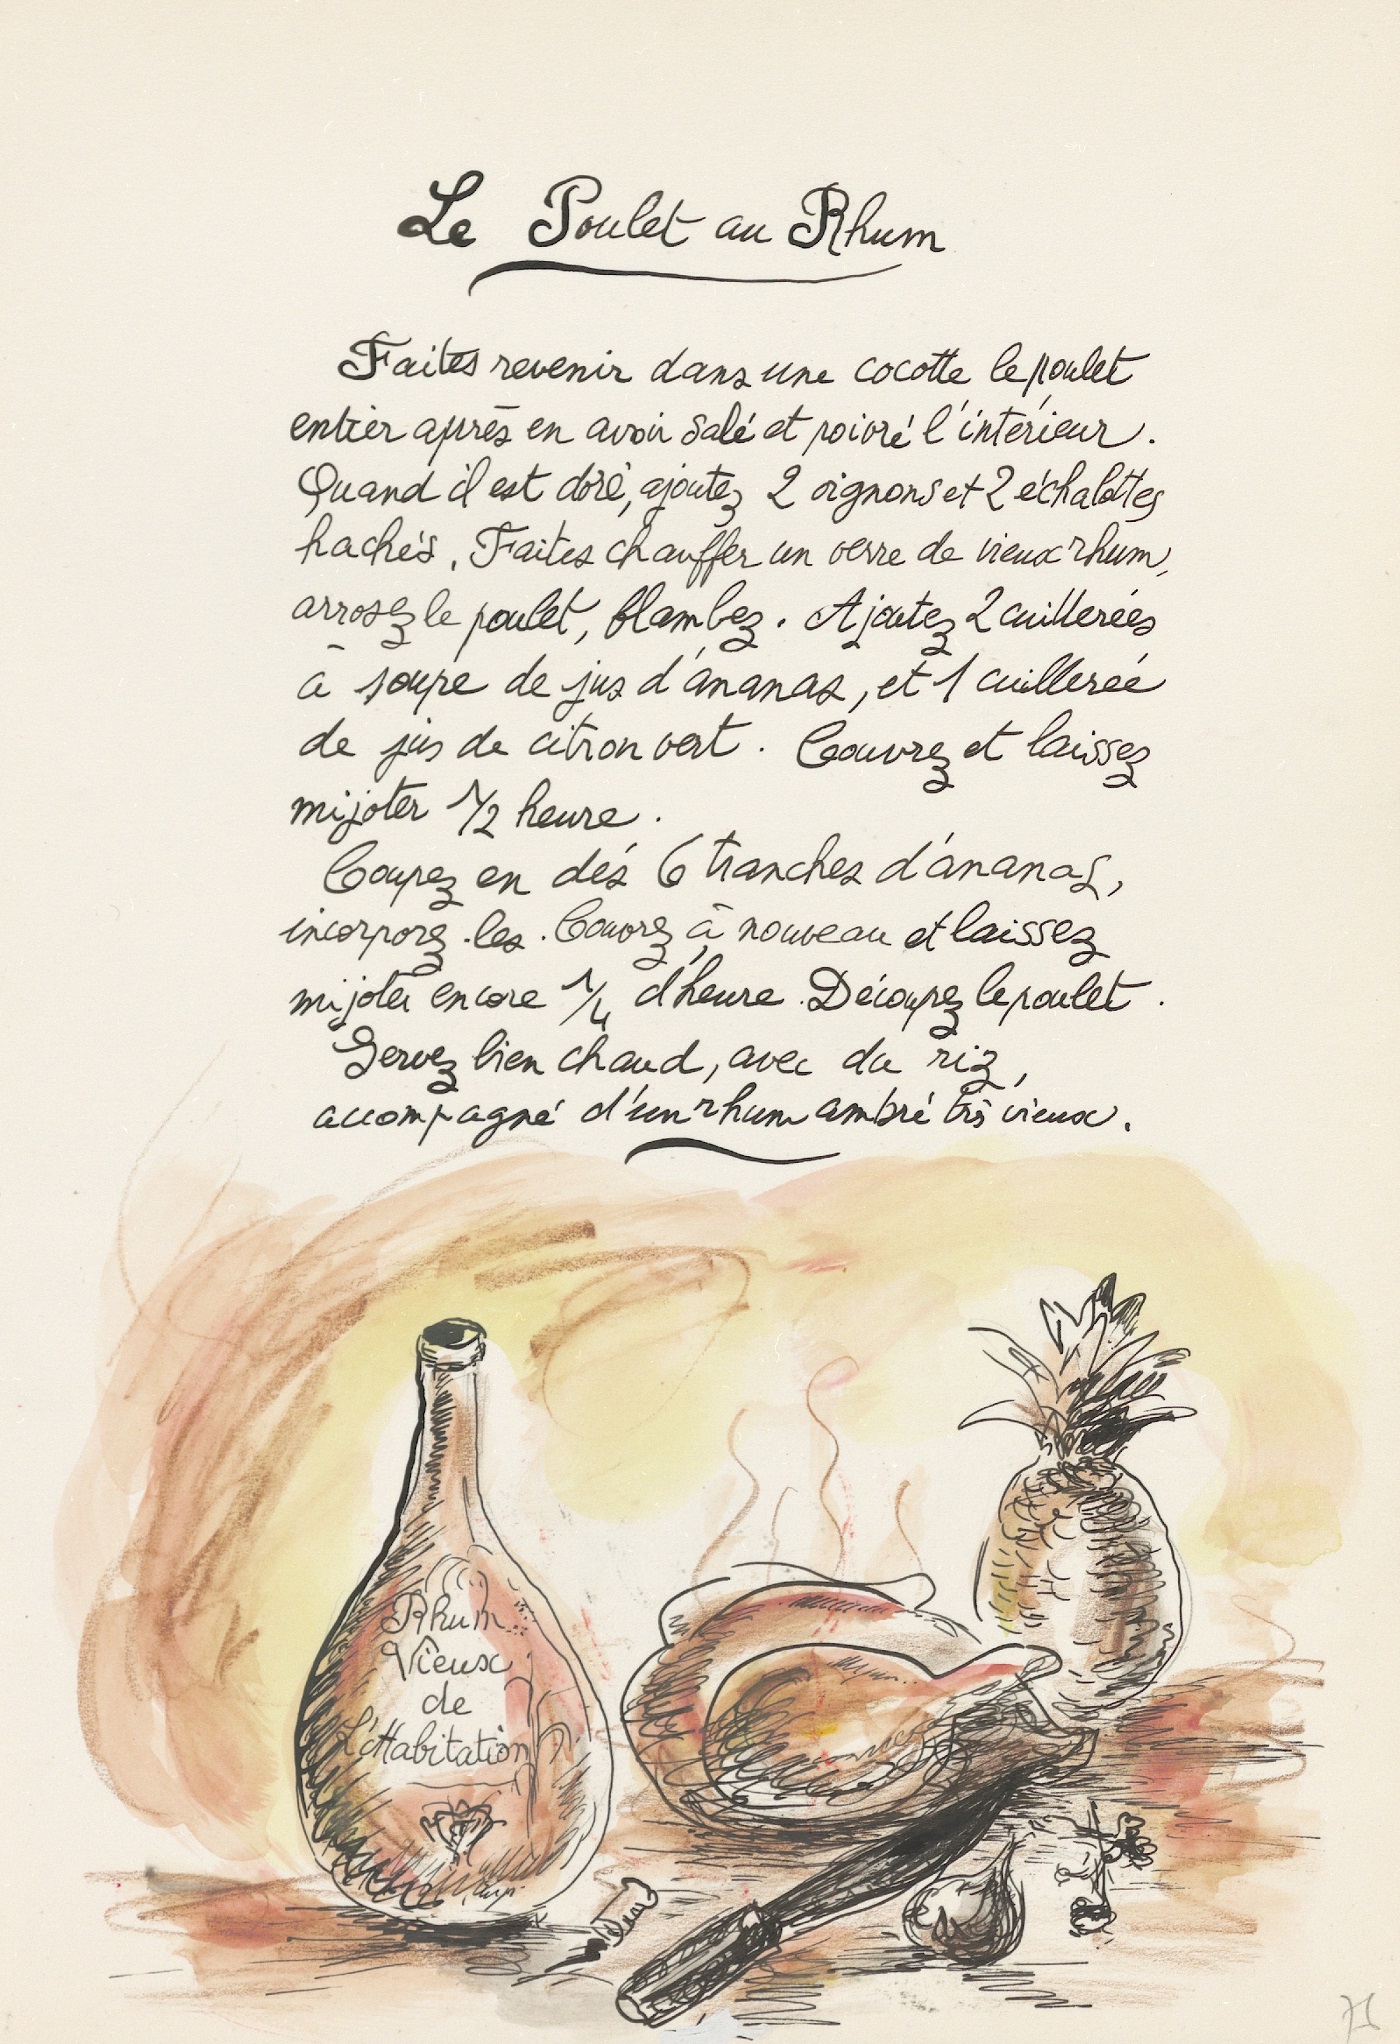 Le Poulet au Rhum
Faites revenir dans une cocotte le poulet
entier après en avoir salé et poivré l'intérieur.
Quand il est doré, ajoutez 2 oignons et 2 échalottes
hachés. Faites chauffer un verre de vieux rhum,
arrosez le poulet, flambez. Ajoutez 2 cuillerées
à soupe de jus d'ananas, et 1 cuillerée
de jus de citron vert. Couvrez et laissez
mijoter 1/2 heure.
Coupez en dés 6 tranches d'ananas,
incorporez-les. Couvrez à nouveau et laissez
mijoter encore 1/4 d'heure. Découpez le poulet.
Servez bien chaud, avec du riz,
accompagné d'un rhum ambré très vieux.
Rhum
Vieux
de
L'Habitation